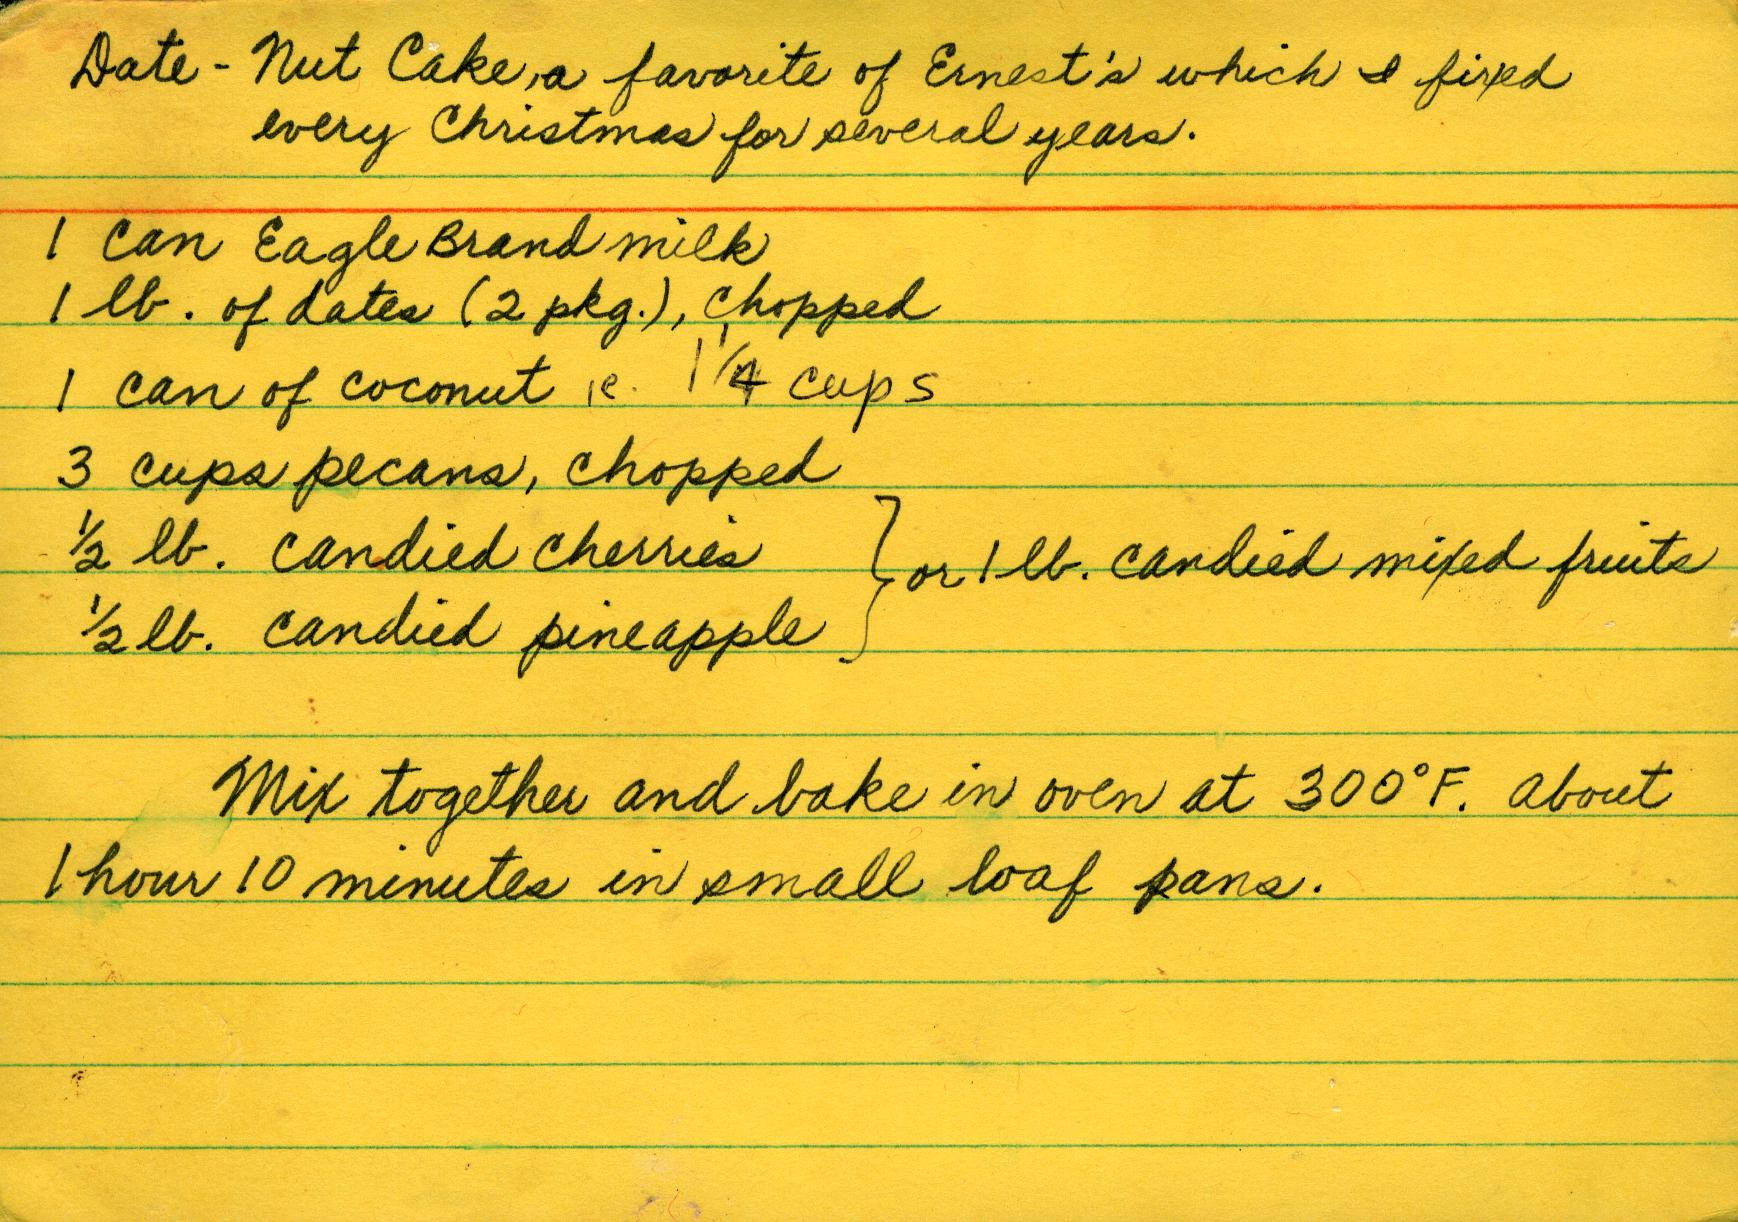 Date-Nut Cake, a favorite of Ernest's which I fixed
every Christmas for several years.
1 can Eagle Brand milk
1 lb. of dates (2 pkg.), chopped
1 can of coconut ie. 1 1/4 cups
3 cups pecans, chopped
1/2 lb. candied cherries
1/2 lb. candied pineapple
} or 1 lb. candied mixed fruits
Mix together and bake in oven at 300°F. about
1 hour 10 minutes in small loaf pans.